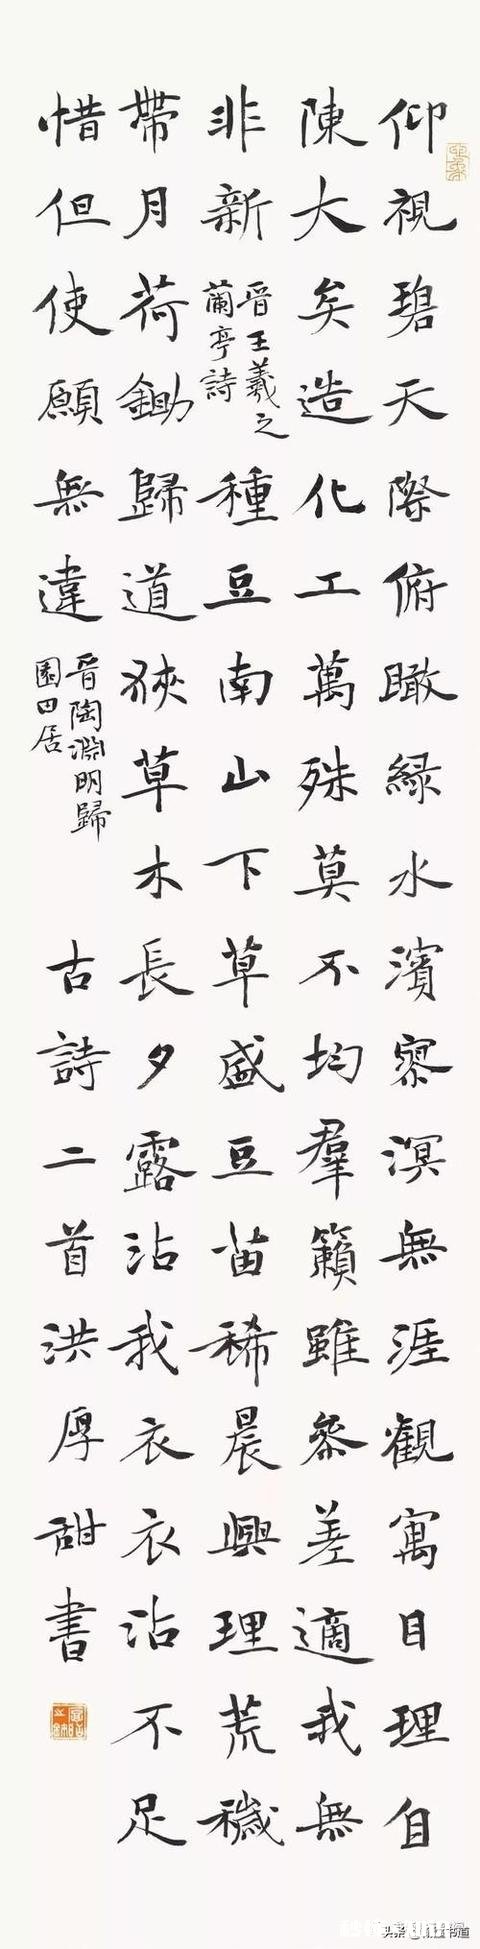 仰視碧天際俯瞰緑水濱寥溟無涯觀寓目理自
陳大矣造化工萬殊莫不均羣籟雖參差適我無
非新
晉王羲之
蘭亭詩
種豆南山下草盛豆苗稀晨興理荒穢
帶月荷鋤歸道狹草木長夕露沾我衣衣沾不足
惜但使願無違
晉陶淵明歸
園田居
古詩二首洪厚甜書
头条
书道